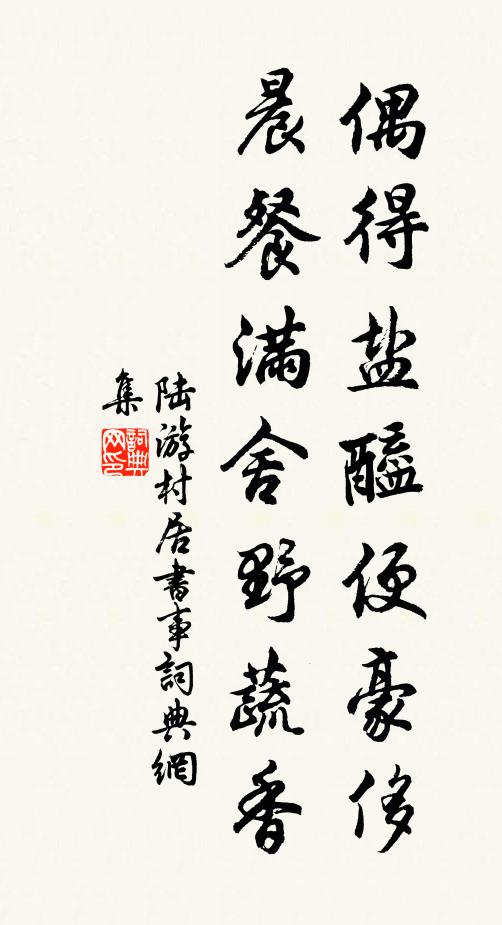 偶得盐醯便豪侈
晨餐满舍野蔬香
陆游村居书事词典網
集
詞典网印